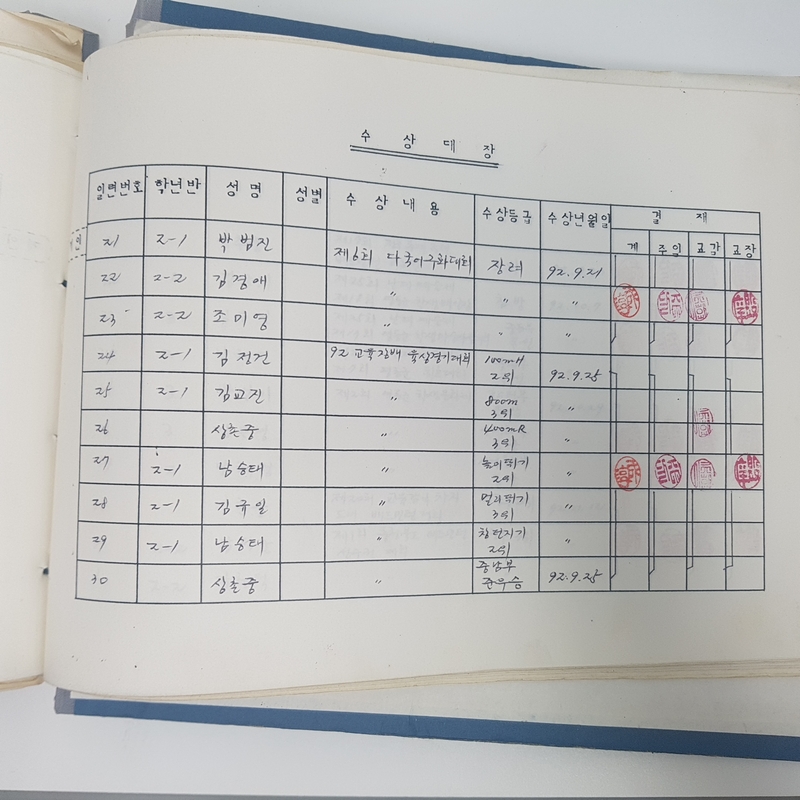 수 상 대 장
일련번호 학년반 성명 성별 수상내용 수상등급 수상년월일 결재
계 주임 교감 교장
21 2-1 박범진 제6회 장려 92.9.21
22 2-2 김경애 〃 〃 〃
23 2-2 조미영 〃 〃 〃
24 2-1 김정건 92 교육장배 육상경기대회 100mH 2위 92.9.25
25 2-1 김교진 〃 800m 3위 〃
26 상촌중 〃 400mR 3위 〃
27 2-1 남승태 〃 높이뛰기 2위 〃
28 2-1 김규일 〃 멀리뛰기 3위 〃
29 2-1 남승태 〃 창던지기 2위 〃
30 상촌중 〃 중남부 준우승 92.9.25